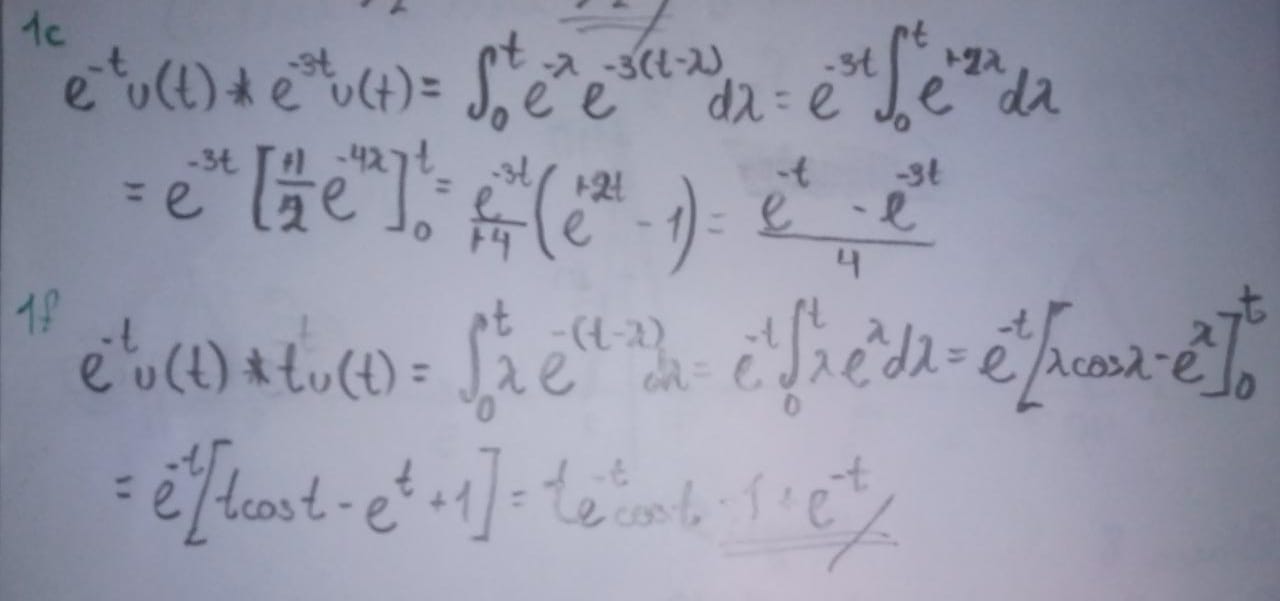 1c
e^{-t}u(t) * e^{-3t}u(t) = ∫₀ᵗ e^{-λ} e^{-3(t-λ)} dλ = e^{-3t} ∫₀ᵗ e^{+2λ} dλ
= e^{-3t} [+1/2 e^{-4λ}]₀ᵗ = e^{-3t}/+4 (e^{+2t} - 1) = (e^{-t} - e^{-3t})/4
1f
e^{-t}u(t) * tu(t) = ∫₀ᵗ λ e^{-(t-λ)} dλ = e^{-t} ∫₀ᵗ λ e^{λ} dλ = e^{-t} [λcosλ - e^{λ}]₀ᵗ
= e^{-t} [tcost - e^{t} + 1] = te^{-t}cost - 1 + e^{-t}